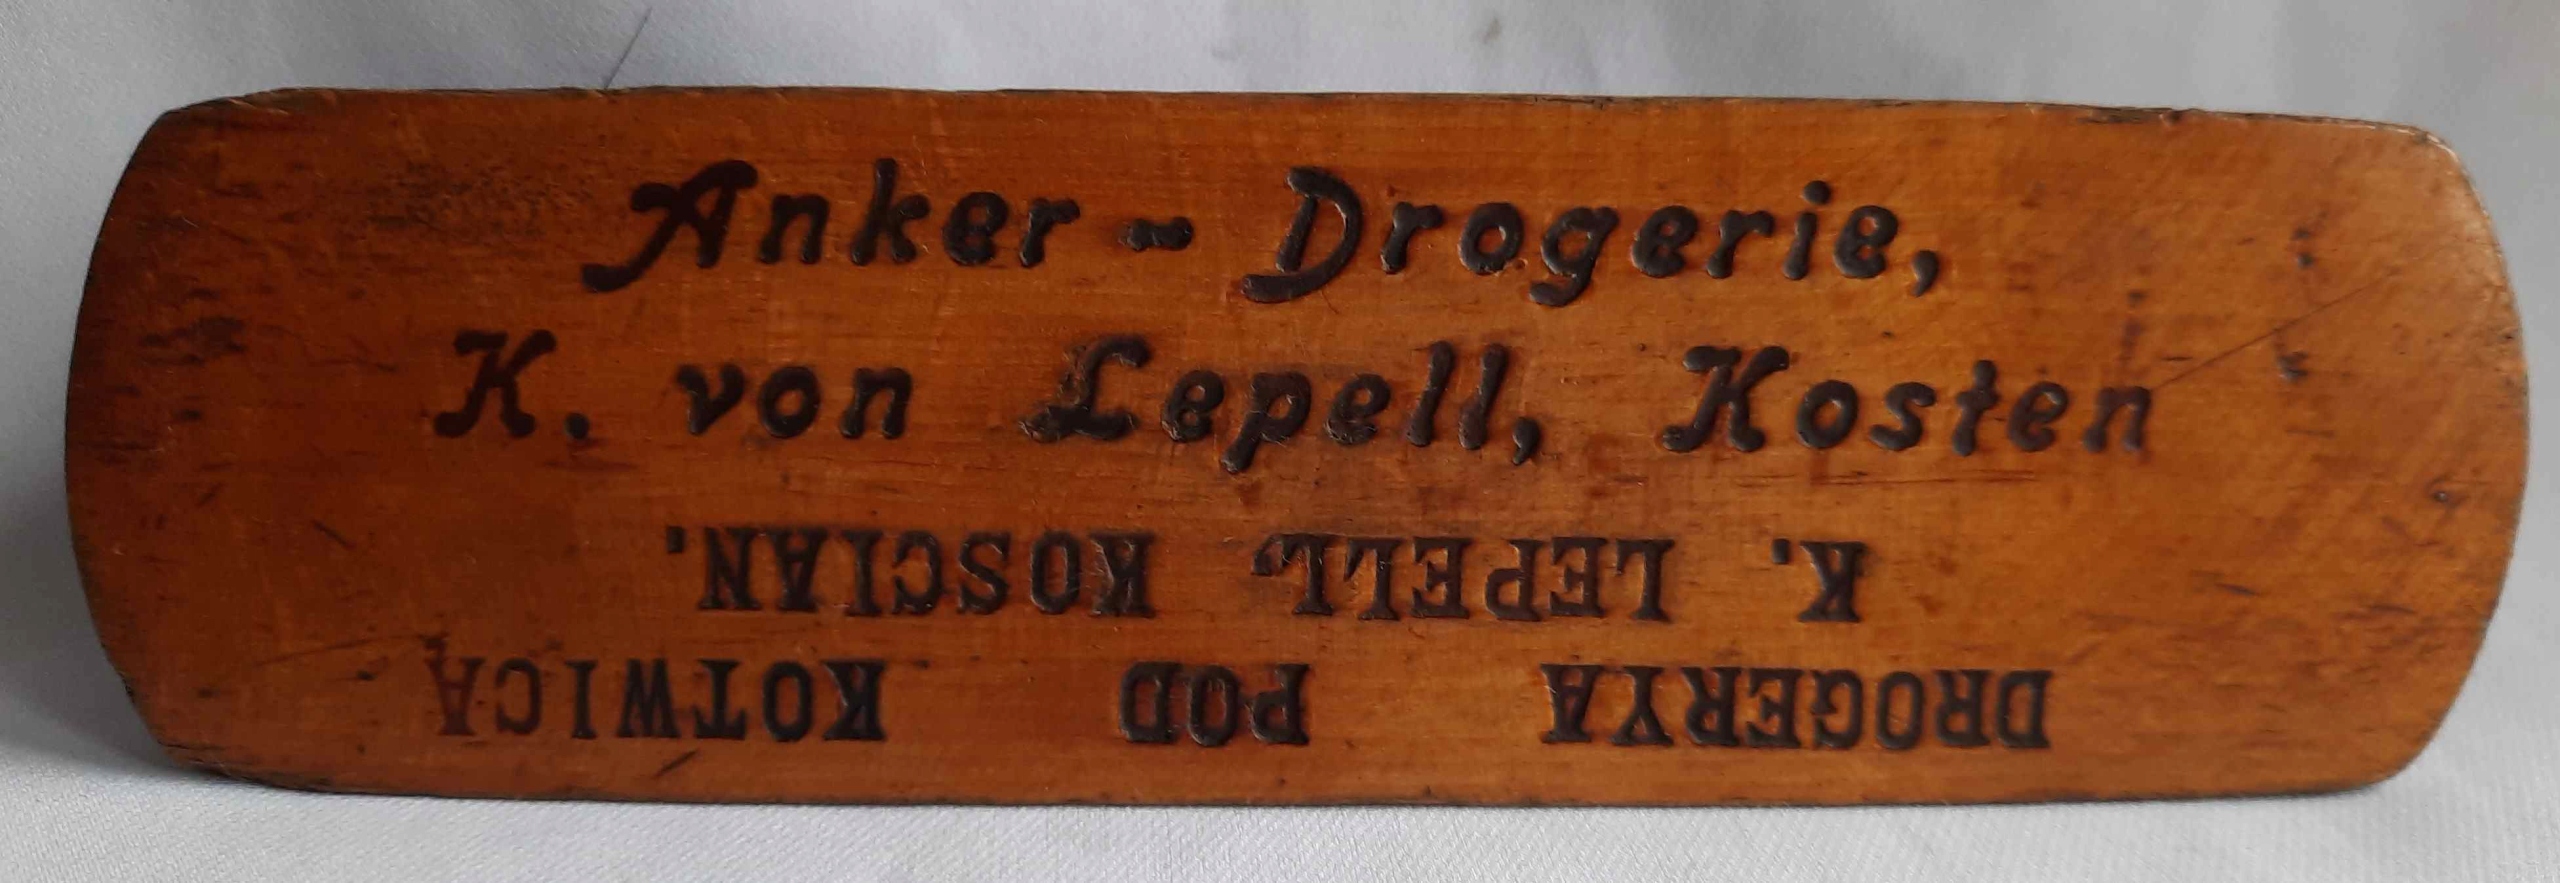 Anker - Drogerie,
K. von Lepell, Kosten
DROGERYA POD KOTWICĄ
K. LEPELL, KOSCIAN.